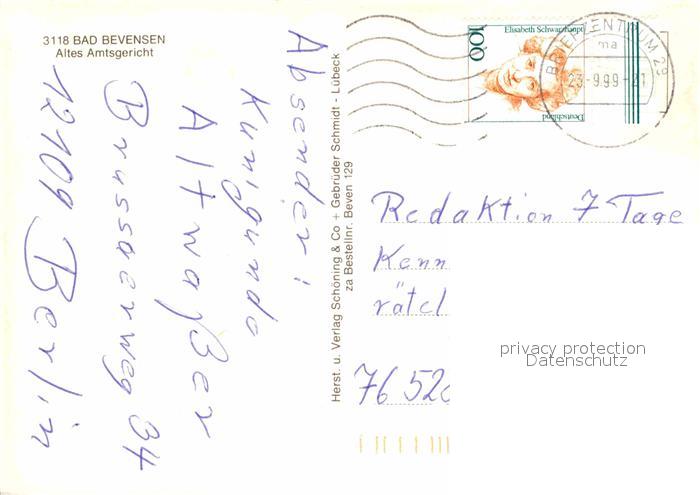 3118 BAD BEVENSEN
Altes Amtsgericht
Absender:
Kunigunde
Altwaßer
34
12109 Berlin
Herst. u. Verlag Schöning & Co + Gebrüder Schmidt - Lübeck
za Bestellnr. Beven 129
100
Elisabeth Schwarzhaupt
Deutschland
BRIEFZENTRUM 29
ma
23-9.99-21
Redaktion 7 Tage
Kenn
rätsel
76 52
privacy protection
Datenschutz